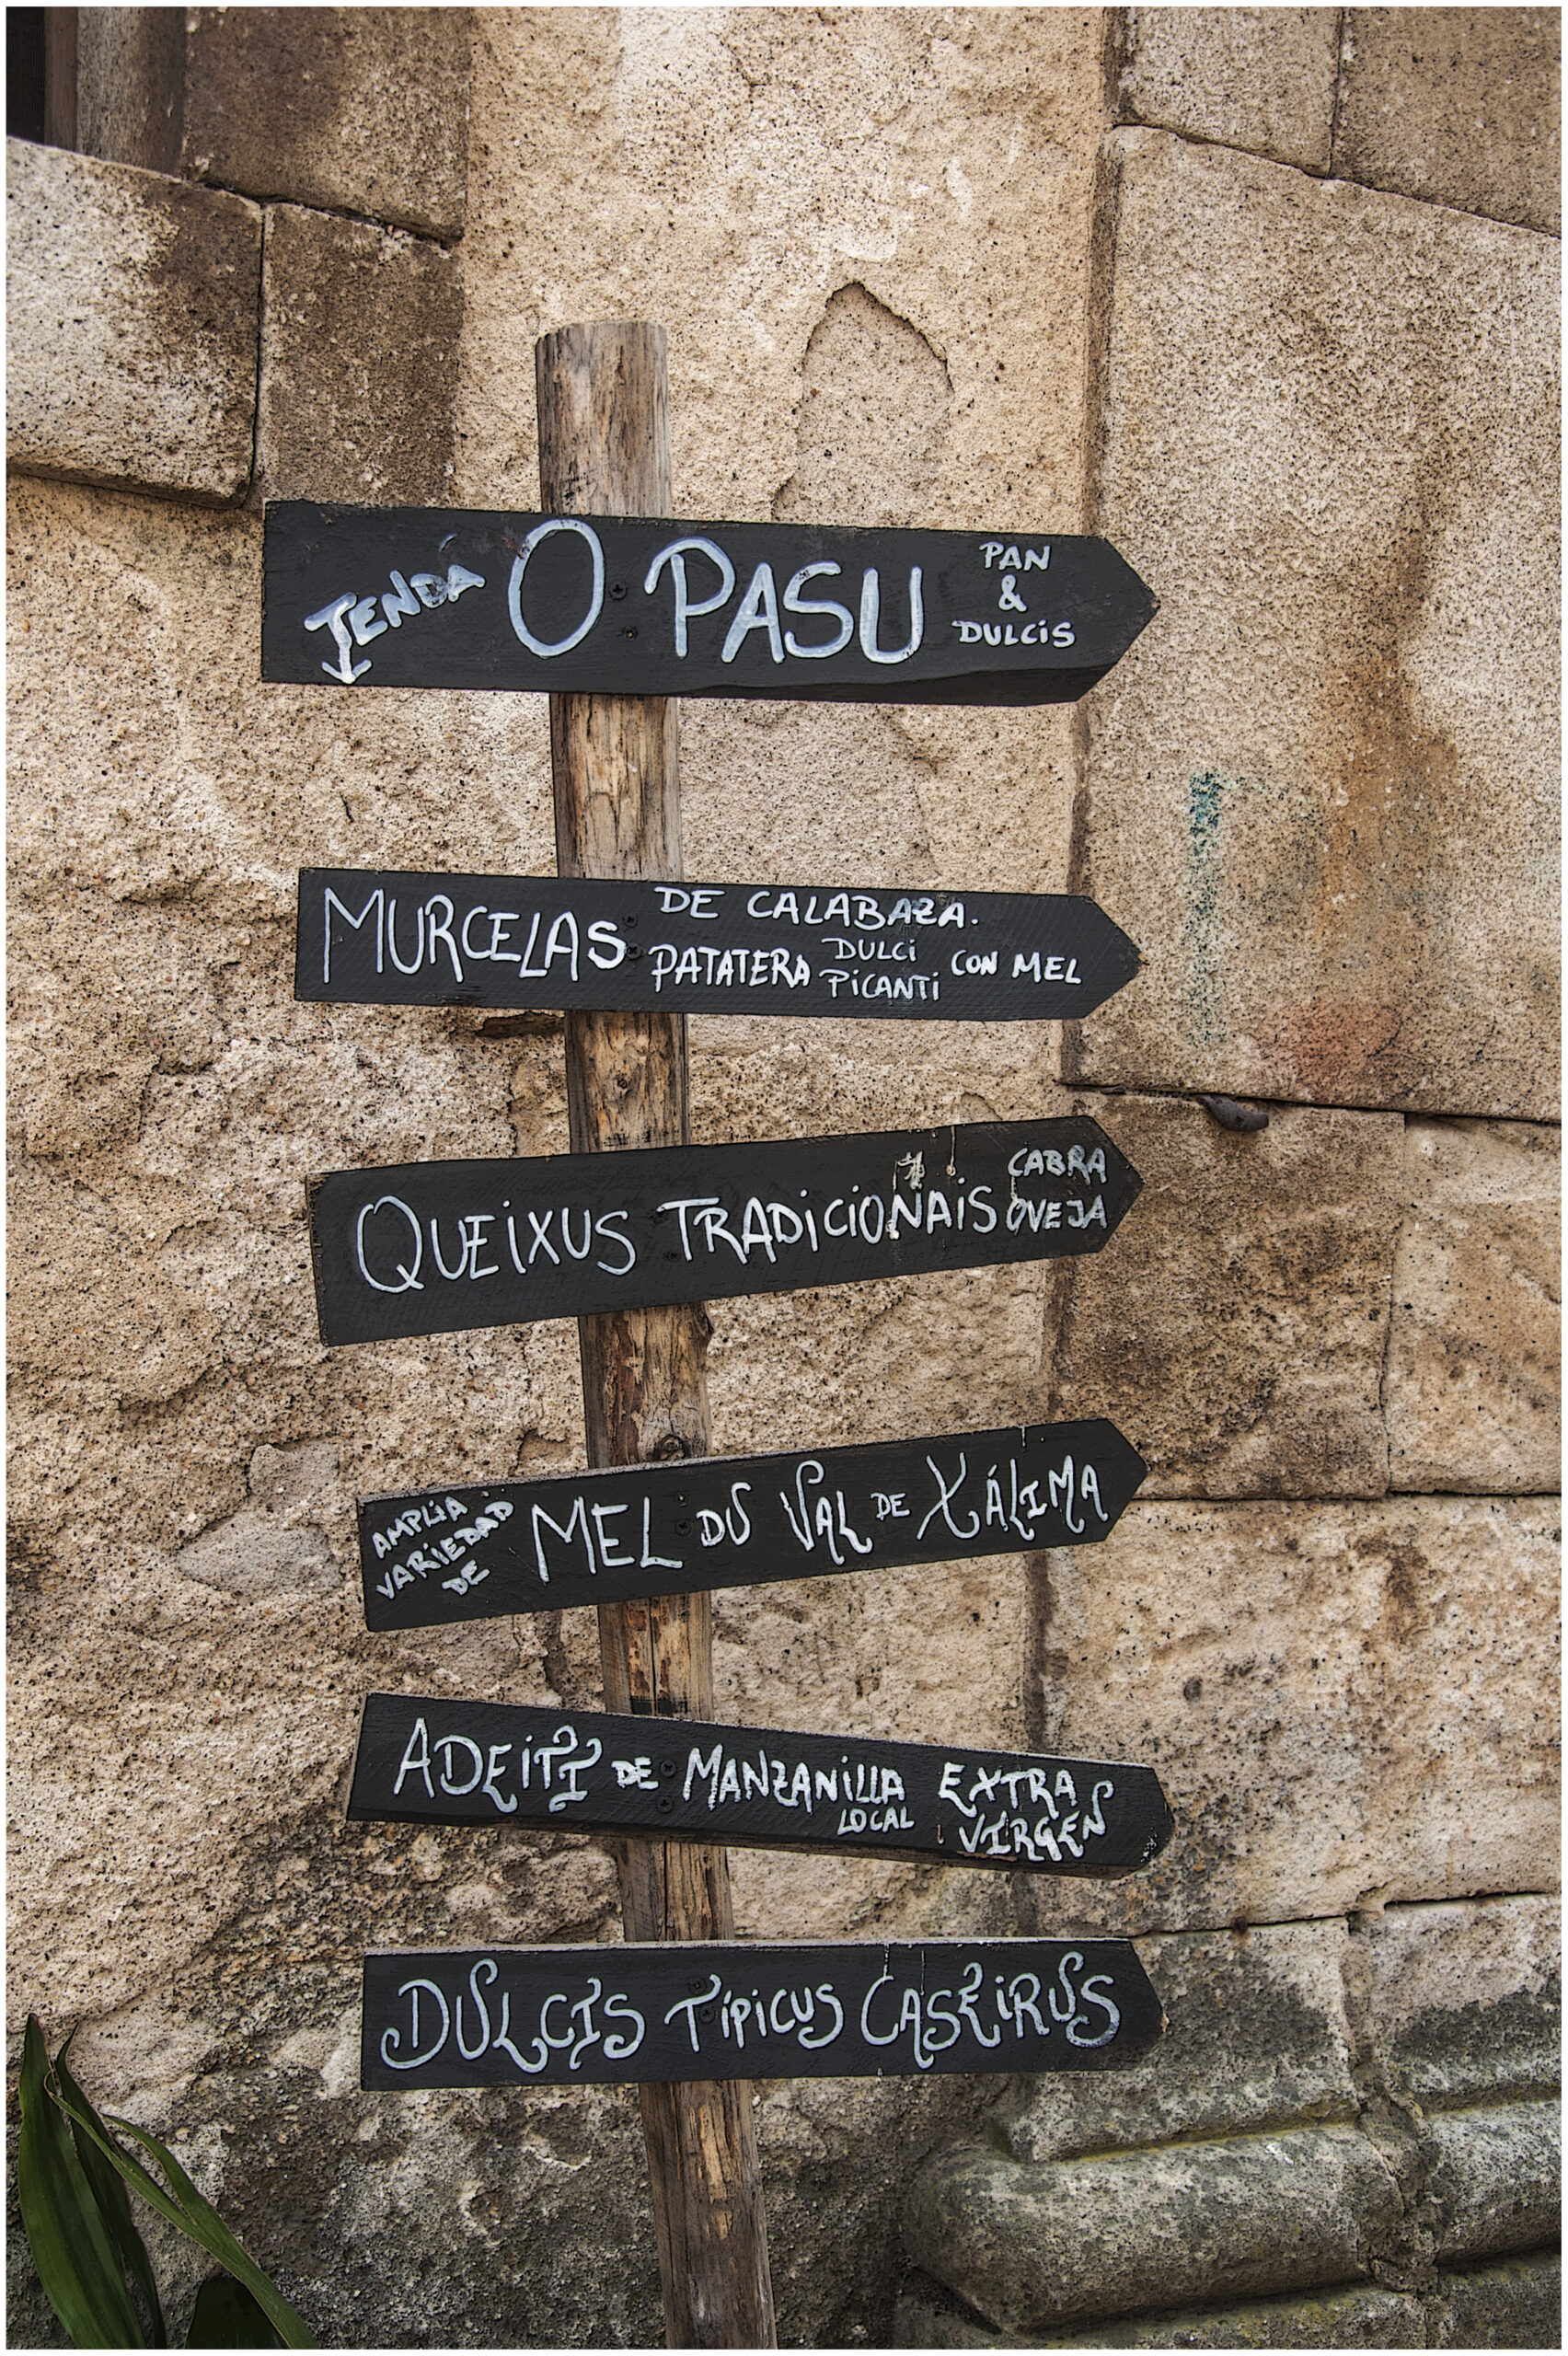 TENDA O PASU PAN
&
DULCIS
MURCELAS DE CALABAZA.
PATATERA DULCI
PICANTI CON MEL
QUEIXUS TRADICIONAIS CABRA
OVEJA
AMPLIA
VARIEDAD
DE MEL DU VAL DE XÁLIMA
ADEITI DE MANZANILLA EXTRA
LOCAL VIRGEN
DULCIS TÍPICUS CASEIRUS